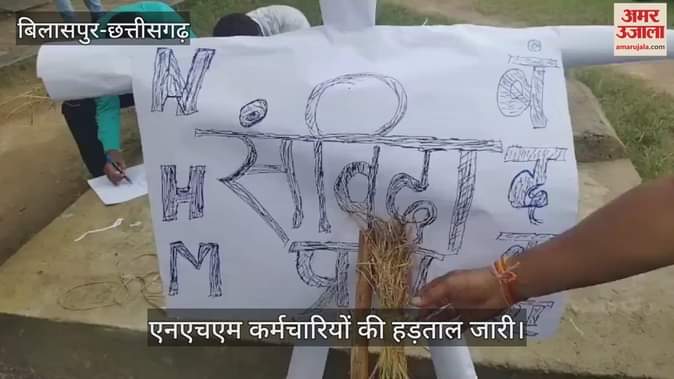 बिलासपुर-छत्तीसगढ़
अमर उजाला
amarujala.com
N
H
M
संविदा
एनएचएम कर्मचारियों की हड़ताल जारी।